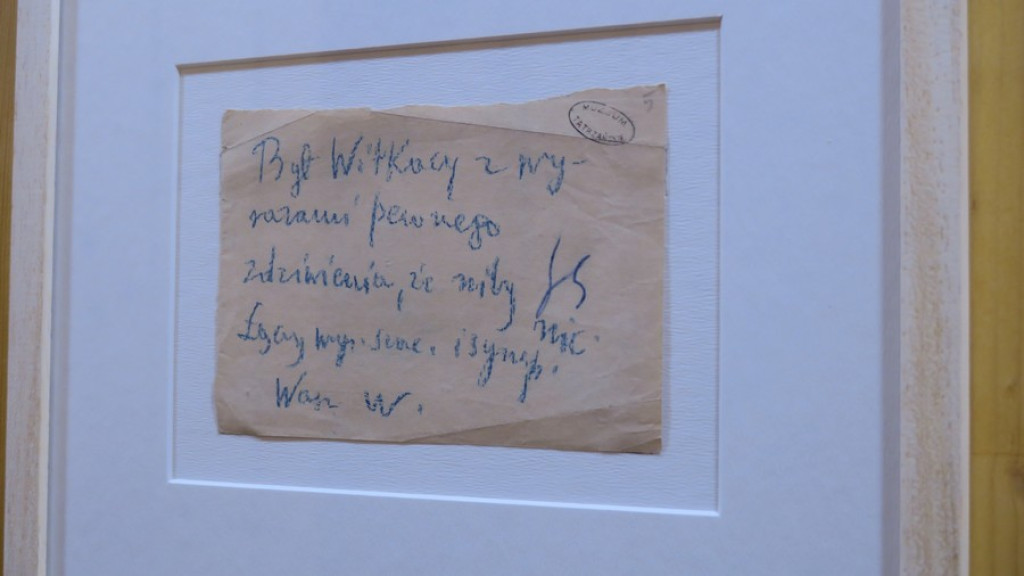 MUZEUM
TATRZAŃSKIE
Był Witkacy z wy-
razami pewnego
zdziwienia, że niby
nic.
Łączy wyr. szac. i symp.
Wasz W.